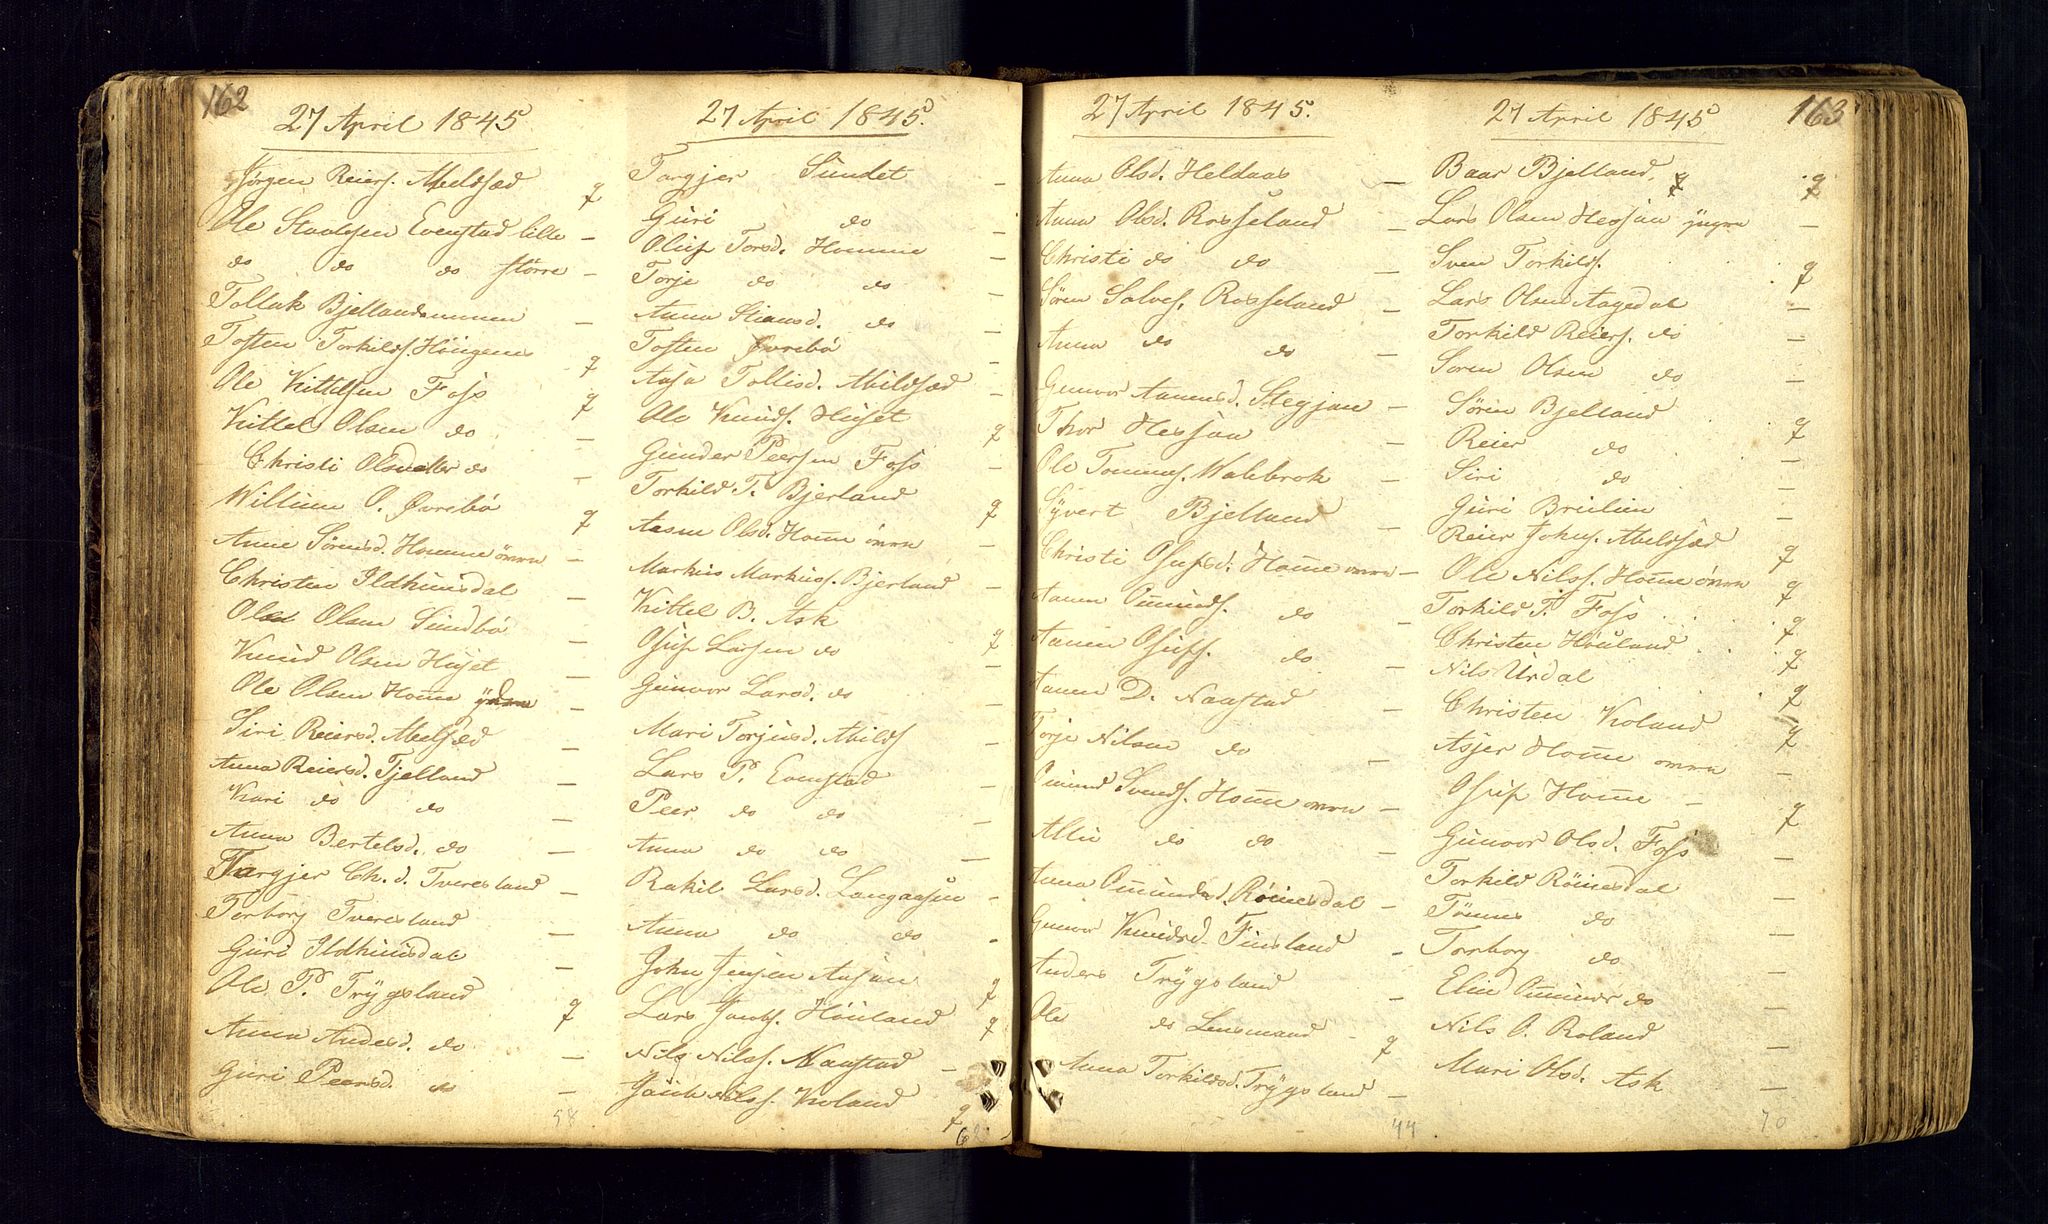 162
27 April 1845
Jørgen Reiers. Abelsæd q
Ole Staalesen Evenstad lille -
do do do større -
Tollak Bjellandsmnen -
Tosten Torkilds. Høugens q
Ole Kittelsen Foss q
Kittel Olsen do -
Christi Olsdatter do -
William O. Øvrebö q
Anne Sörensd. Homme ömrn -
Christen Ildhuusdal -
Ole Olsen Sundbö -
Knud Olsen Huset -
Ole Olsen Home -
Siri Reiersd. Abelsæd -
Anna Reiersd. Tjelland -
Kari do do -
Anna Bertelsd. do -
Targjer Ch. d. Tveresland -
Torborg Tveresland -
Guri Ildhuusdal -
Ole P. Trÿgsland q
Anna Andersd. do -
Guri Peersd. do -
58
27 April 1845.
Targjer Sundet -
Guri do -
Olise Torsd. Homme -
Torje do do -
Anna Stiansd. do -
Tosten Øvrebö -
Aasa Tollisd. Abildsæd -
Ole Knuds. Huset q
Gunder Peersen Foss -
Torkild T. Bjerland q
Aasne Olsd. Home ömrn -
Markus Markuss. Bjerland -
Kittel B. Ask q
Osuf Larsen do -
Gunvor Larsd. do -
Mari Torjusd. Abilds -
Lars P. Evenstad -
Peer do do -
Anna do do -
Rakil Larsd. Langaasen -
Anna do do -
John Jensen Aasen q
Lars Jacobs. Høuland q
Nils Nilss. Naastad -
Jacob Nilss. Koland q
62
27 April 1845.
Anna Olsd. Heldaas -
Anna Olsd. Rosseland -
Christi do do -
Sören Salves. Rosseland -
Anna do do -
Gunvor Aanensd. Stegjan -
Thor Hessaa -
Ole Tommes. Walebrok -
Syvert Bjelland -
Christi Osufsd. Home omrn -
Aanen Omunds. do -
Aanen Osufs. do -
Aanen D. Naastad -
Torje Nilsen do -
Omund Svends. Home omrn -
Alli do do -
Anna Omundsd. Röiesdal -
Gunvor Knudsd. Finsland -
Anders Trÿgsland -
Ole do Lensmand - q
Anna Torkildsd. Trÿgsland -
44
163
27 April 1845
Baar Bjelland q q
Lars Olsen Hessaa yngre -
Sven Torkilds. q
Lars Olsen Aagedal -
Torkild Reiers. do -
Soren Olsen do -
Sörin Bjelland q
Reier do -
Siri do -
Guri Breilien -
Reier Johns. Abelsæd q
Ole Nilss. Home ömrn q
Torkild T. Foss q
Christen Høuland q
Nils Urdal q
Christen Koland q
Asjer Home omrn -
Osuf Home - q
Gunvor Olsd. Foss -
Torkild Röinesdal -
Tönnes do -
Torborg do -
Elin Omunds do -
Nils O. Roland -
Mari Olsd. Ask -
70